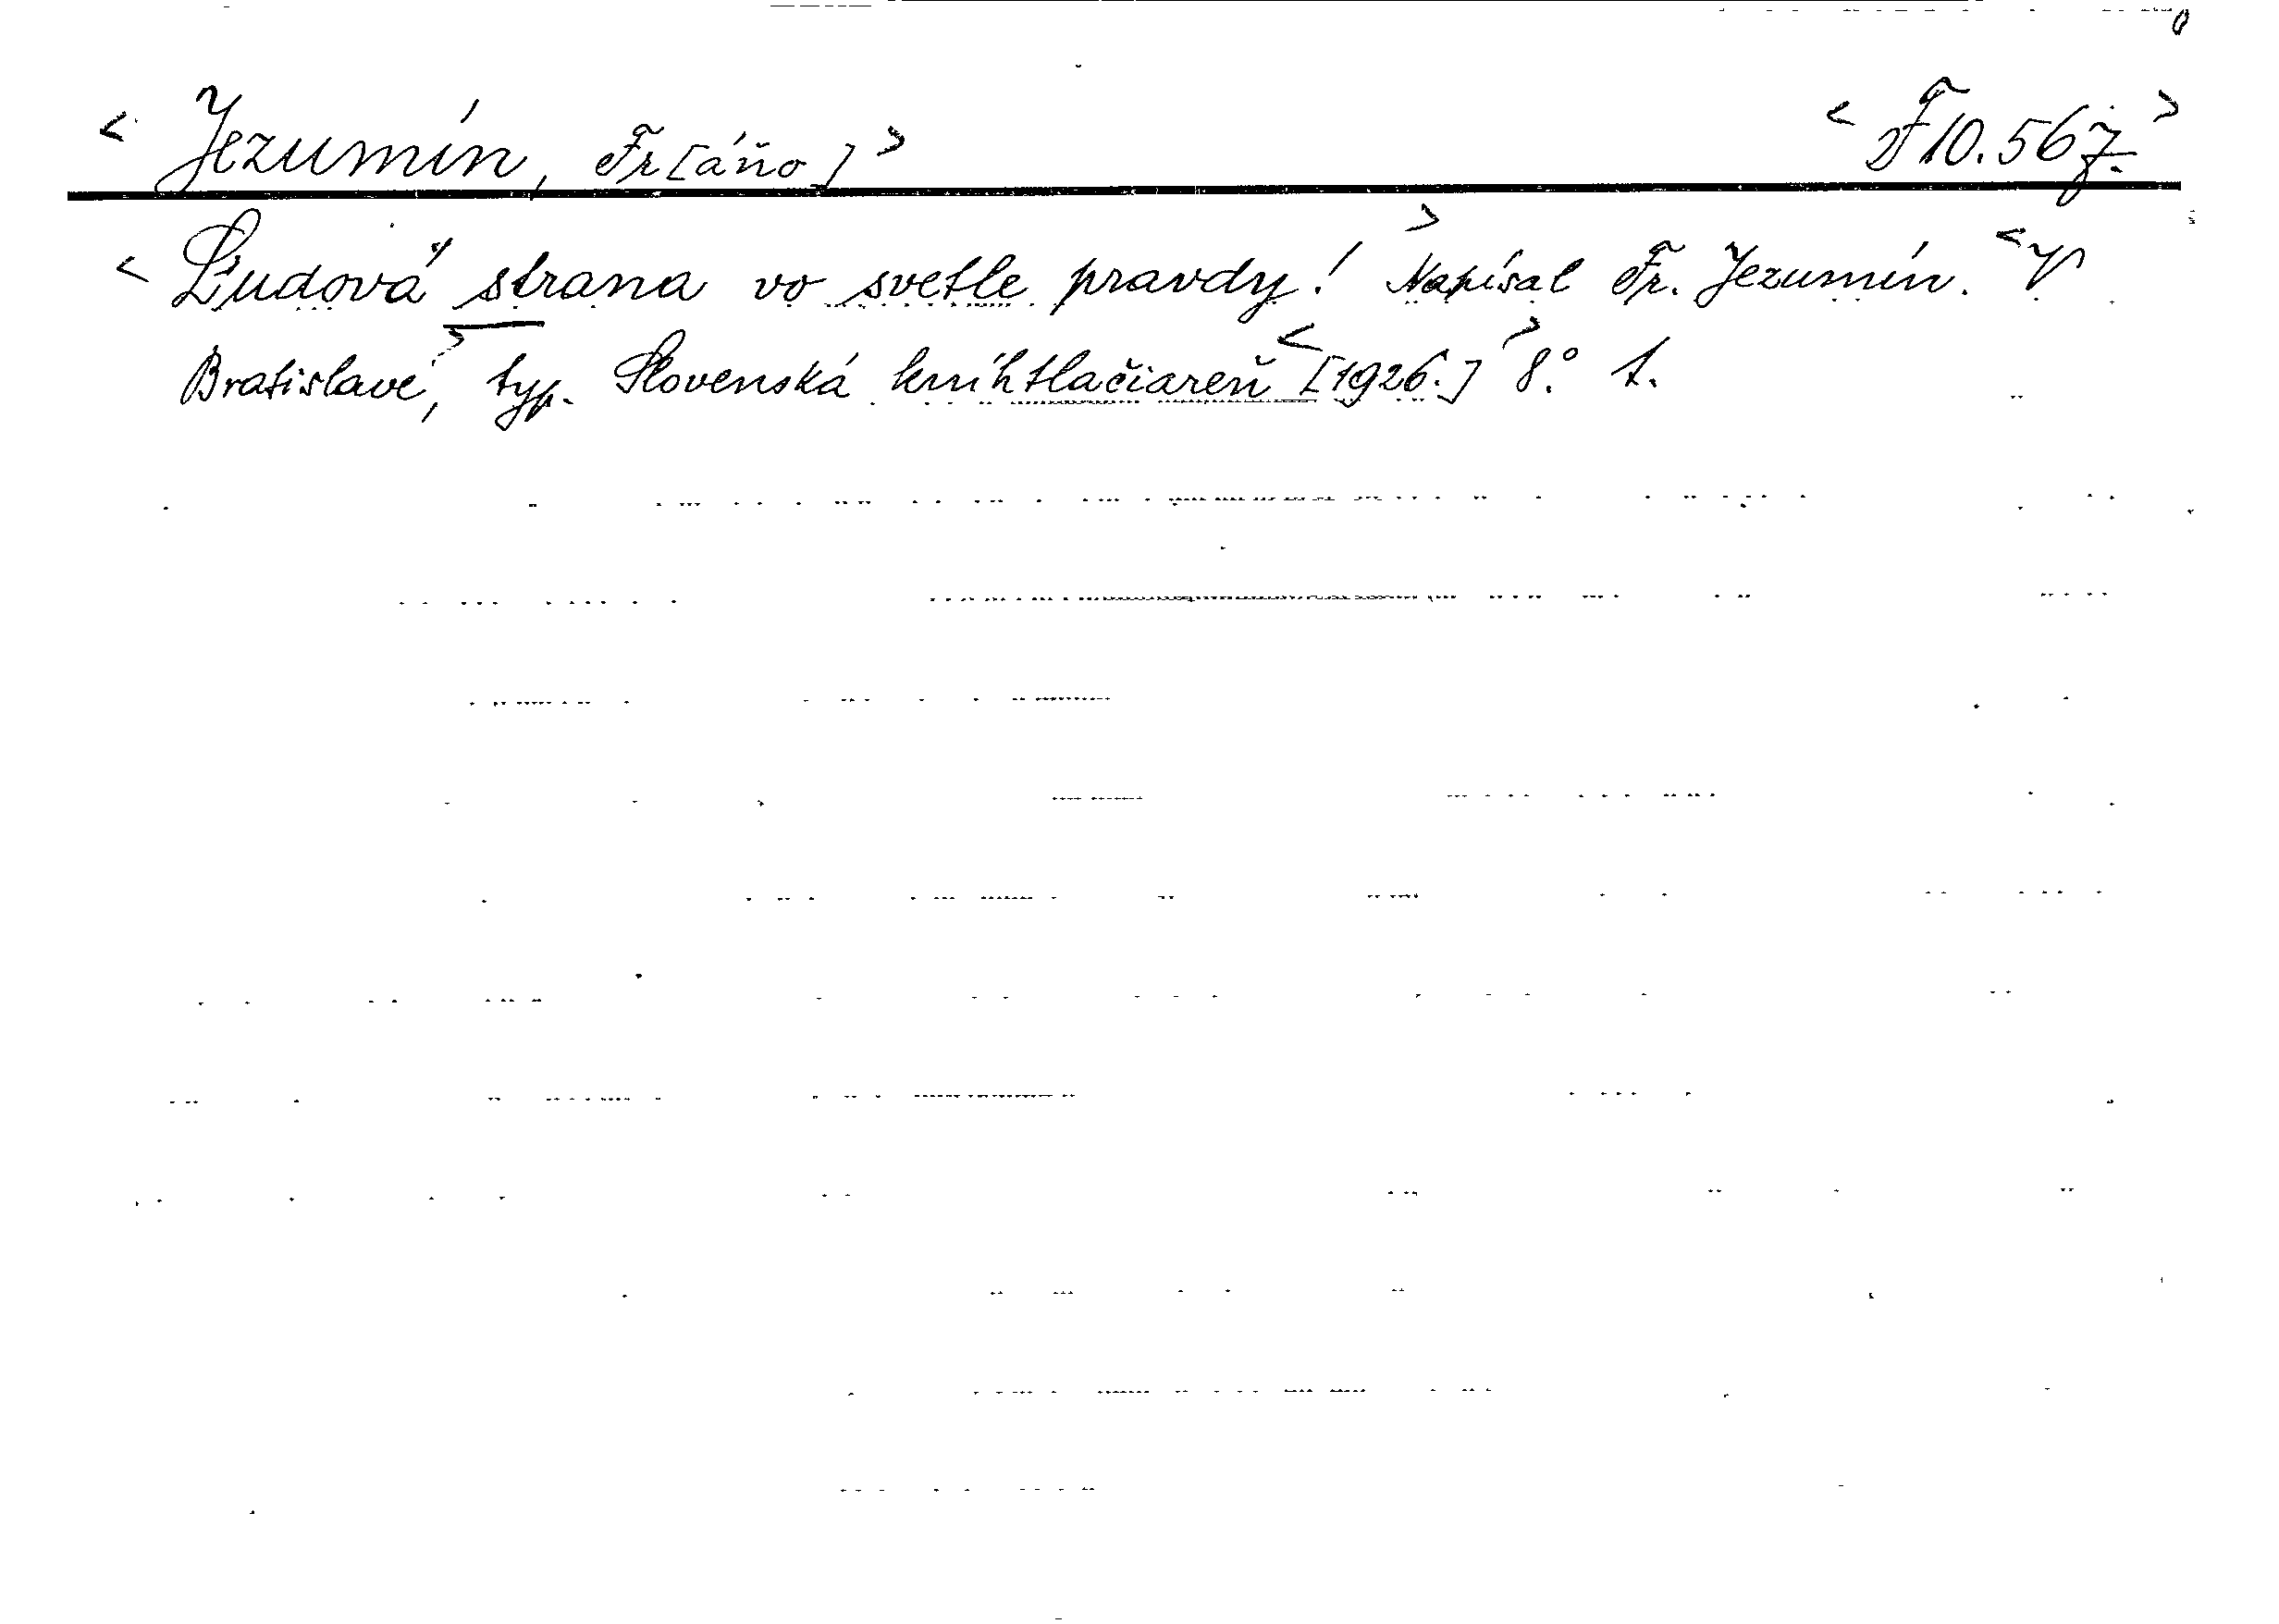 < Jezumín, Fr[áňo] > < F 10.567. >
< Ľudová strana vo svetle pravdy! > Napísal Fr. Jezumín. < V
Bratislave, > typ. Slovenská kníhtlačiareň < [1926.] > 8.° 1.